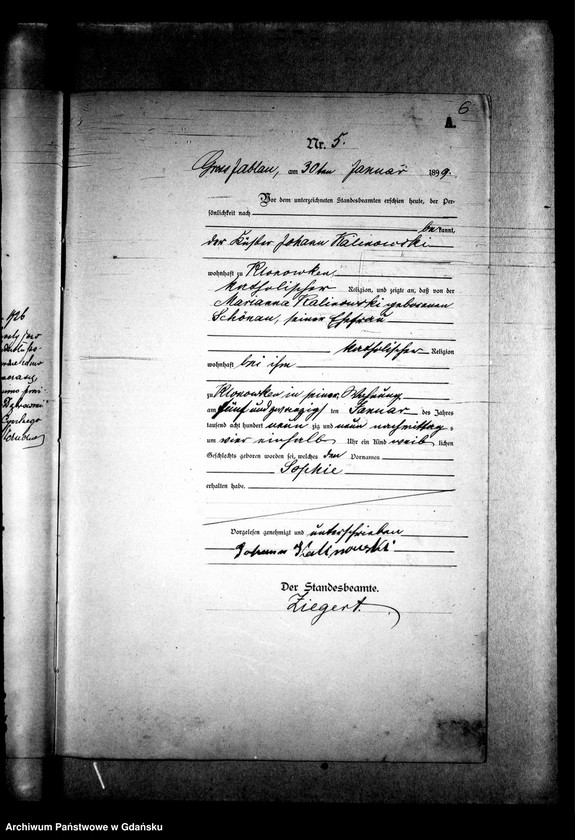 6
A.
Nr. 5.
Gross Jablau, am 30ten Januar 1899.
Vor dem unterzeichneten Standesbeamten erschien heute, der Per-
sönlichkeit nach
bekannt,
der Küster Johann Kalinowski
wohnhaft zu Klonowken,
katholischer Religion, und zeigte an, daß von der
Marianna Kalinowski geborenen
Schönau, seiner Ehefrau
katholischer Religion
wohnhaft bei ihm
zu Klonowken in seiner Wohnung
am fünf und zwanzigsten Januar des Jahres
tausend acht hundert neun zig und neun nachmittags
um vier einhalb Uhr ein Kind weib lichen
Geschlechts geboren worden sei, welches den Vornamen
Sophie
erhalten habe.
Vorgelesen genehmigt und unterschrieben
Johann Kalinowski
Der Standesbeamte.
Ziegert.
Archiwum Państwowe w Gdańsku